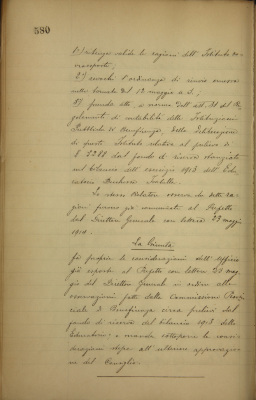 580
1º) ritenga valide le ragioni dell'Istituto
2º) revochi l'ordinanza di rinvio emessa
nella tornata del 12 maggio
3º) prenda atto a norma dell'art. del Re-
golamento di contabilità delle Istituzioni
Pubbliche di Beneficenza, della deliberazione
di questo Istituto relativa al prelievo di
£ 5288 dal fondo di riserva stanziato
nel bilancio dell'esercizio 1913 dell'Edu-
catorio
Lo stesso Relatore osserva che dette ra-
gioni furono già comunicate al Prefetto
dal Direttore Generale con lettera 29 maggio
1914.
La Giunta
fa proprie le considerazioni dell'Ufficio
già esposte al Prefetto con lettera 29 mag-
gio del Direttore Generale in ordine alle
osservazioni fatte dalla Commissione Provin-
ciale di Beneficenza circa prelievi dal
fondo di riserva del bilancio 1913 dello
Educatorio; e manda sottoporre le consi-
derazioni stesse all'ulteriore approvazio-
ne del Consiglio.